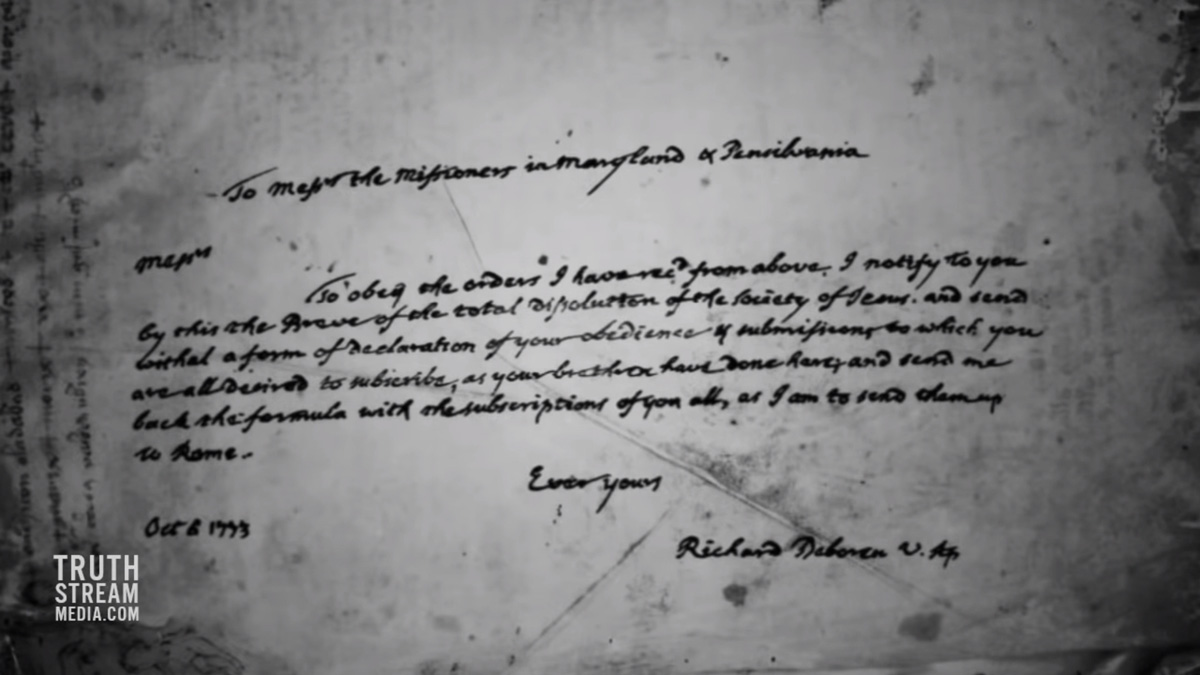 To Messrs the Missioners in Maryland & Pensilvania
Messrs
To obey the orders I have recd from above, I notify to you
by this the Breve of the total dissolution of the Society of Jesus. and send
withal a form of declaration of your obedience & submission, to which you
are all desired to subscribe, as your brethren have done here; and send me
back the formula with the subscriptions of you all, as I am to send them up
to Rome.
Ever yours
Oct 6 1773
Richard Deboren V. Ap
TRUTH
STREAM
MEDIA.COM